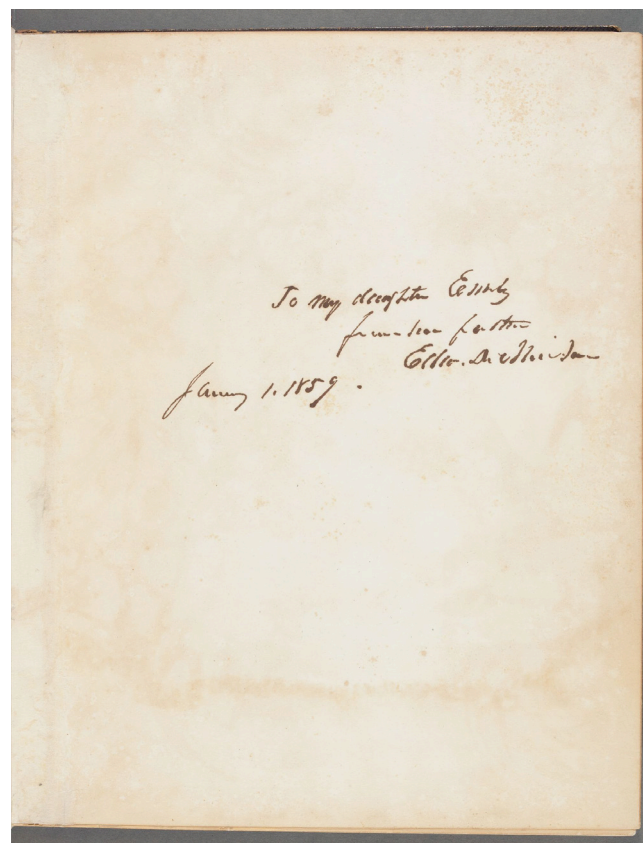 To my daughter Emily
from her father
Edw. Dickinson
January 1. 1859.